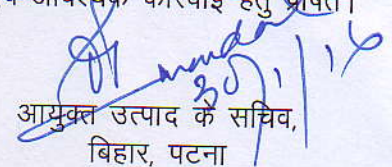 आवश्यक कार्रवाई हेतु प्रेषित।
30/1/16
आयुक्त उत्पाद के सचिव,
बिहार, पटना